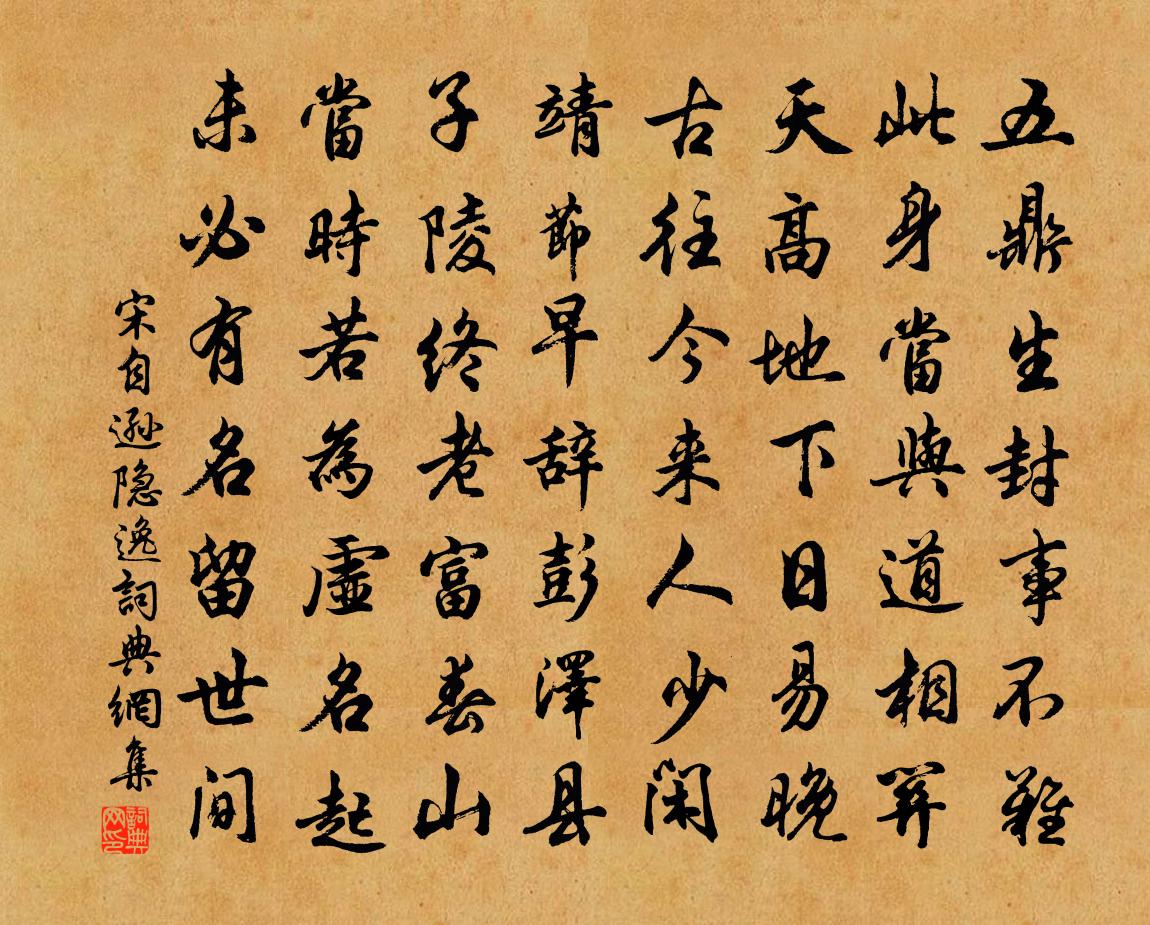 五鼎生封事不難
此身當與道相關
天高地下日易晚
古往今来人少閑
靖節早辞彭澤县
子陵終老富春山
當時若為虛名起
未必有名留世間
宋自遜隐逸詞典網集
詞典网印